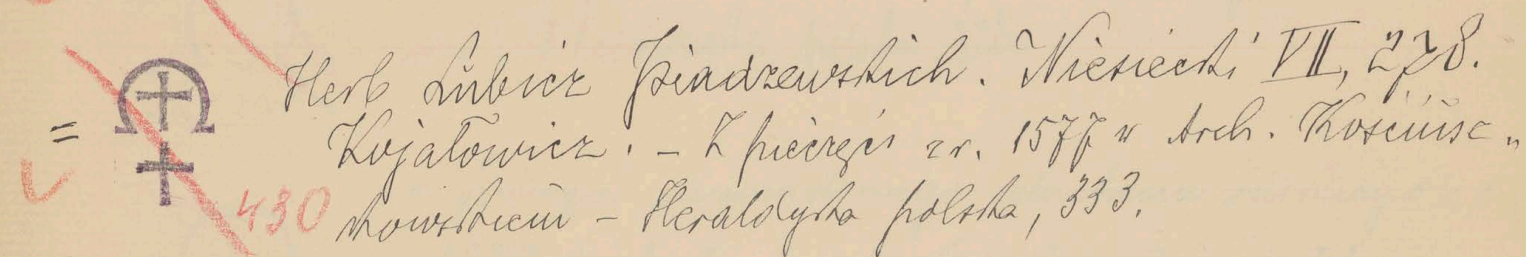 Herb Lubicz Piadzewskich. Niesiecki VII, 278.
= Kojałowicz. – Z pieczęci z r. 1577 w Arch. Kościusz „
430 kowskiem – Heraldyka polska, 333.